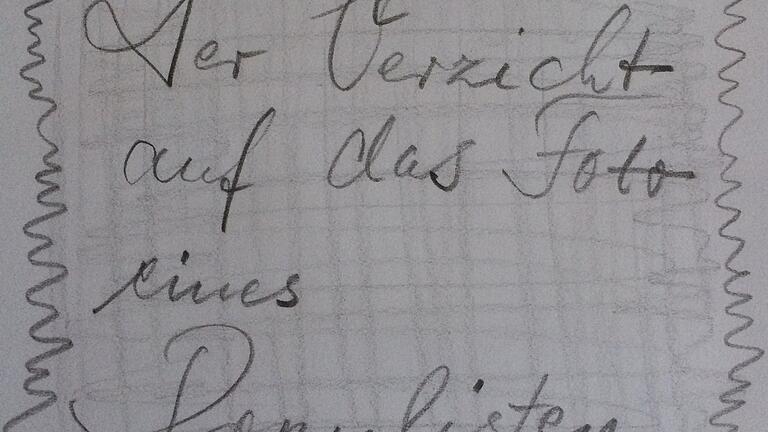 Der Verzicht
auf das Foto
eines
Populisten